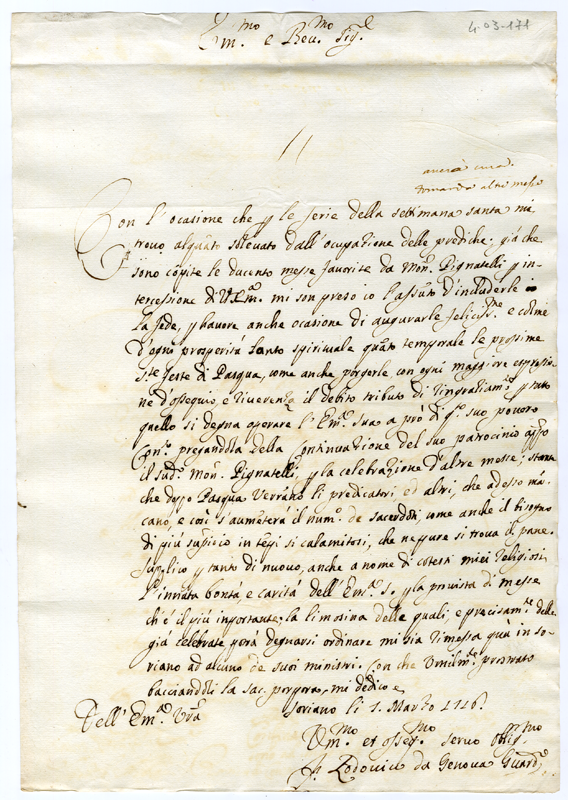 4-03-171
Em.mo e Reu.mo Sig.r
auerà cura di
domandar altre messe
Con l'ocasione che p le ferie della settimana santa mi
trouo alquãto soleuato dall'ocupatione delle prediche; già che
sono cõpite le ducento messe fauorite da Mon.r Pignatelli p in-
tercessione di V. Em.a mi son preso io l'assũto d'includerle
la fede, p hauere anche ocasione di augurarle feliciss.me e colme
d'ogni prosperità tanto spirituale quãto temporale le prossime
S.te feste di Pasqua, come anche porgerle con ogni maggiore espressio-
ne d'ossequio, e riuerenza il debito tributo di ringratiam.ti p tutto
quello si degna operare l'Em.a Sua a prò di q.o suo pouero
Con.to pregandola della Continuatione del suo patrocinio app.o
il sud.o Mon.r Pignatelli, p la celebratione d'altre messe; stante
che doppo Pasqua verrano li predicatori, ed altri, che adesso mã-
cano, e così s'aumẽterà il num.o de sacerdoti, come anche il bisogno
di più sussidio in tẽpi sì calamitosi, che neppure si troua il pane.
Suplico p tanto di nuouo, anche a nome di cotesti miei religiosi
l'innata bontà e carità dell'Em.a S. p la prouista di messe
ch'è il più inportante; la limosina delle quali, e precisam.te delle
già celebrate potrà degnarsi ordinare mi sia rimessa quà in So-
riano ad alcuno de suoi ministri. Con che Vmilm.te prostrato
bacciandoli la sac. porpora, mi dedico e
Soriano li 1. Marzo 1716.
Dell'Em.a V.ra
Vm.mo et osseq.mo seruo oblig.mo
F. Lodouico da Genoua Guard.o